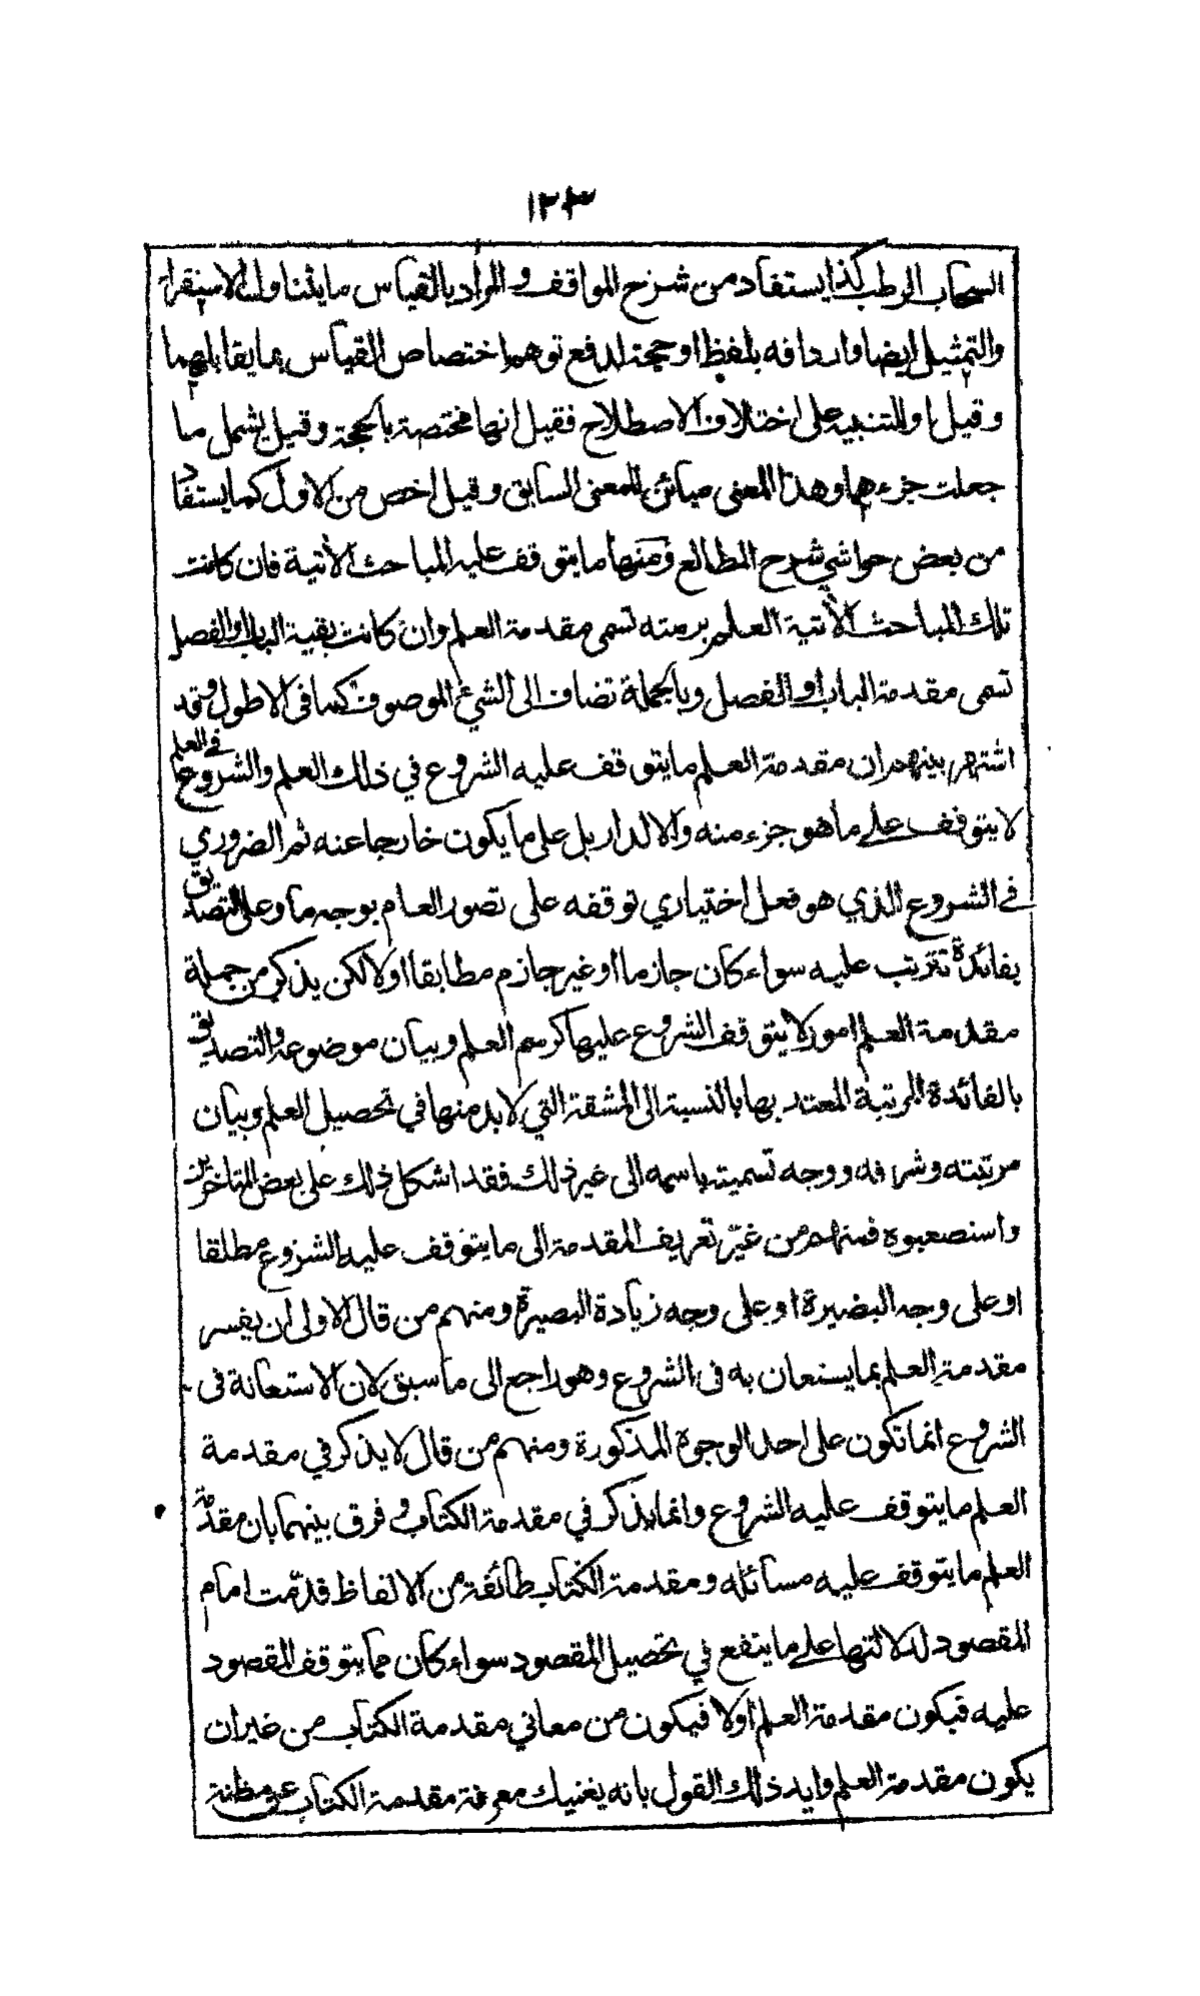 ١٢٣٣
السحاب الرطب كذا يستفاد من شرح المواقف والمراد بالقياس ما يتناول الاستقراء
والتمثيل ايضا واردافه بلفظ او حجة لدفع توهم اختصاص القياس بما يقابلهما
وقيل او للتنبيه على اختلاف الاصطلاح فقيل انها مختصة بالحجة وقيل يشمل ما
جعلت جزءهما وهذا المعنى مبائن للمعنى السابق وقيل اخص من الاول كما يستفاد
من بعض حواشي شرح المطالع ومنها ما يتوقف عليه المباحث الآتية فان كانت
تلك المباحث الآتية العلم برمته تسمى مقدمة العلم وان كانت بقية الباب او الفصل
تسمى مقدمة الباب او الفصل وبالجملة تضاف الى الشيء الموصوف كما في الاطول وقد
اشتهر بينهم ان مقدمة العلم ما يتوقف عليه الشروع في ذلك العلم والشروع في العلم
لا يتوقف على ما هو جزء منه والا لدار بل على ما يكون خارجا عنه ثم الضروري
في الشروع الذي هو فعل اختياري توقفه على تصور العلم بوجه ما وعلى التصديق
بفائدة تترتب عليه سواء كان جازما او غير جازم مطابقا او لا لكن يذكر من جملة
مقدمة العلم امور لا يتوقف الشروع عليها كرسم العلم وبيان موضوعه والتصديق
بالفائدة المرتبة المعتد بها بالنسبة الى المشقة التي لا بد منها في تحصيل العلم وبيان
مرتبته وشرافه ووجه تسميته باسمه الى غير ذلك فقد اشكل ذلك على بعض المتاخرين
واستصعبوه فمنهم من غيّر تعريف المقدمة الى ما يتوقف عليه الشروع مطلقا
او على وجه البصيرة او على وجه زيادة البصيرة ومنهم من قال الاولى ان يفسر
مقدمة العلم بما يستعان به في الشروع وهو راجع الى ما سبق لان الاستعانة في
الشروع انما تكون على احد الوجوه المذكورة ومنهم من قال لا يذكر في مقدمة
العلم ما يتوقف عليه الشروع وانما يذكر في مقدمة الكتاب وفرق بينهما بان مقدمة
العلم ما يتوقف عليه مسائله ومقدمة الكتاب طائفة من الالفاظ قدّمت امام
المقصود لدلالتها على ما ينفع في تحصيل المقصود سواء كان مما يتوقف المقصود
عليه فيكون مقدمة العلم او لا فيكون من معاني مقدمة الكتاب من غير ان
يكون مقدمة العلم وايد ذلك القول بانه يغنيك معرفة مقدمة الكتاب عن مظنة